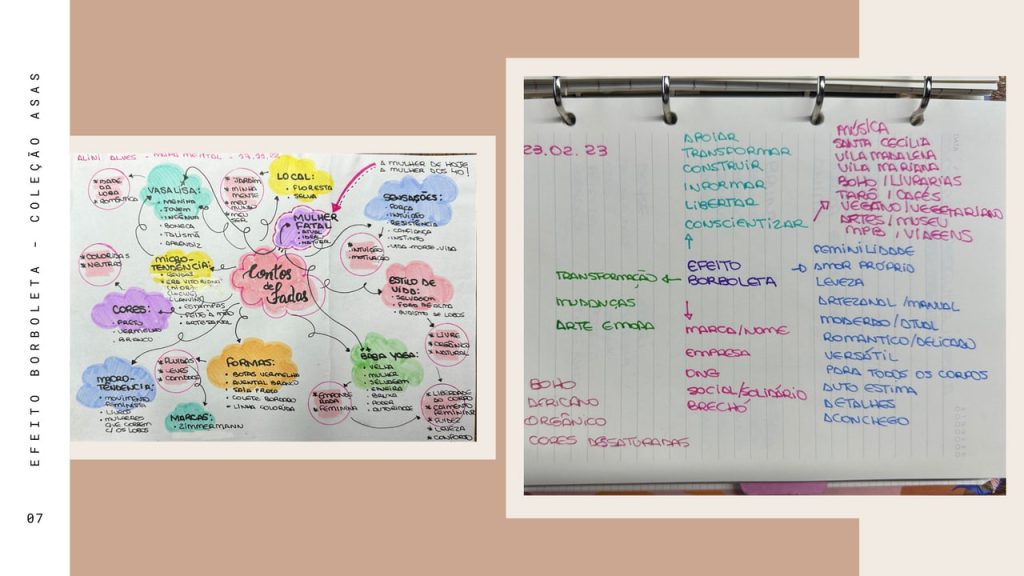 EFEITO BORBOLETA - COLEÇÃO ASAS
07
ALINI ALVES - MAPA MENTAL -
A MULHER DE HOJE/
VASALISA:
MENINA
JOVEM
INGÊNUA
BONECA
TALISMÃ
APRENDIZ
ROMÂNTICA
* JARDIM
* MINHA
MENTE
* MEU
MUNDO
* MEU
SER
LOCAL:
FLORESTA
SELVA
MULHER
FATAL
ATUAL
IDEAL
NATURAL
SENSAÇÕES:
FORÇA
INTUIÇÃO
RESISTÊNCIA
CONFIANÇA
INSTINTO
VIDA-MORTE-VIDA
* INTUIÇÃO
* MOTIVAÇÃO
* COLORIDAS
* NEUTRAS
MICRO-
TENDÊNCIA:
ERA VITORIANA
ESTAMPAS
FEITO A MÃO
ARTESANAL
Contos
de
Fadas
ESTILO DE
VIDA:
SELVAGEM
FORA DE
* LIVRE
* ORGÂNICO
* NATURAL
CORES:
PRETO
VERMELHO
BRANCO
* FLUIDAS
* LEVES
FORMAS:
BOTAS VERMELHA
AVENTAL BRANCO
SAIA PRETA
COLETE BORDADO
LINHA COLORIDA
BABA YAGA:
VELHA
MULHER
SELVAGEM
BRUXA
PODER
MACRO-
TENDÊNCIA:
MOVIMENTO
FEMINISTA
LIVRO
MULHERES
QUE CORREM
C/ OS LOBOS
MARCAS:
ZIMMERMANN
FEMININA
* LIBERDADE
DO CORPO
* CAIMENTO
FEMININO
* FLUIDEZ
* LEVEZA
* CONFORTO
23.02.23
APOIAR
TRANSFORMAR
CONSTRUIR
INFORMAR
LIBERTAR
CONSCIENTIZAR
MÚSICA
SANTA CECÍLIA
VILA MADALENA
VILA MARIANA
BOHO/LIVRARIAS
TARO/CAFÉS
VEGANO/VEGETARIANO
ARTES/MUSEU
MPB/VIAGENS
EFEITO
BORBOLETA
TRANSFORMAÇÃO
MUDANÇAS
ARTE E MODA
MARCA/NOME
EMPRESA
ONG
SOCIAL/SOLIDÁRIO
BRECHÓ
FEMINILIDADE
AMOR PRÓPRIO
LEVEZA
ARTEZANAL/MANUAL
MODERNO/ATUAL
ROMÂNTICO/DELICADO
VERSÁTIL
PARA TODOS OS CORPOS
AUTO ESTIMA
DETALHES
ACONCHEGO
BOHO
AFRICANO
ORGÂNICO
CORES DESSATURADAS